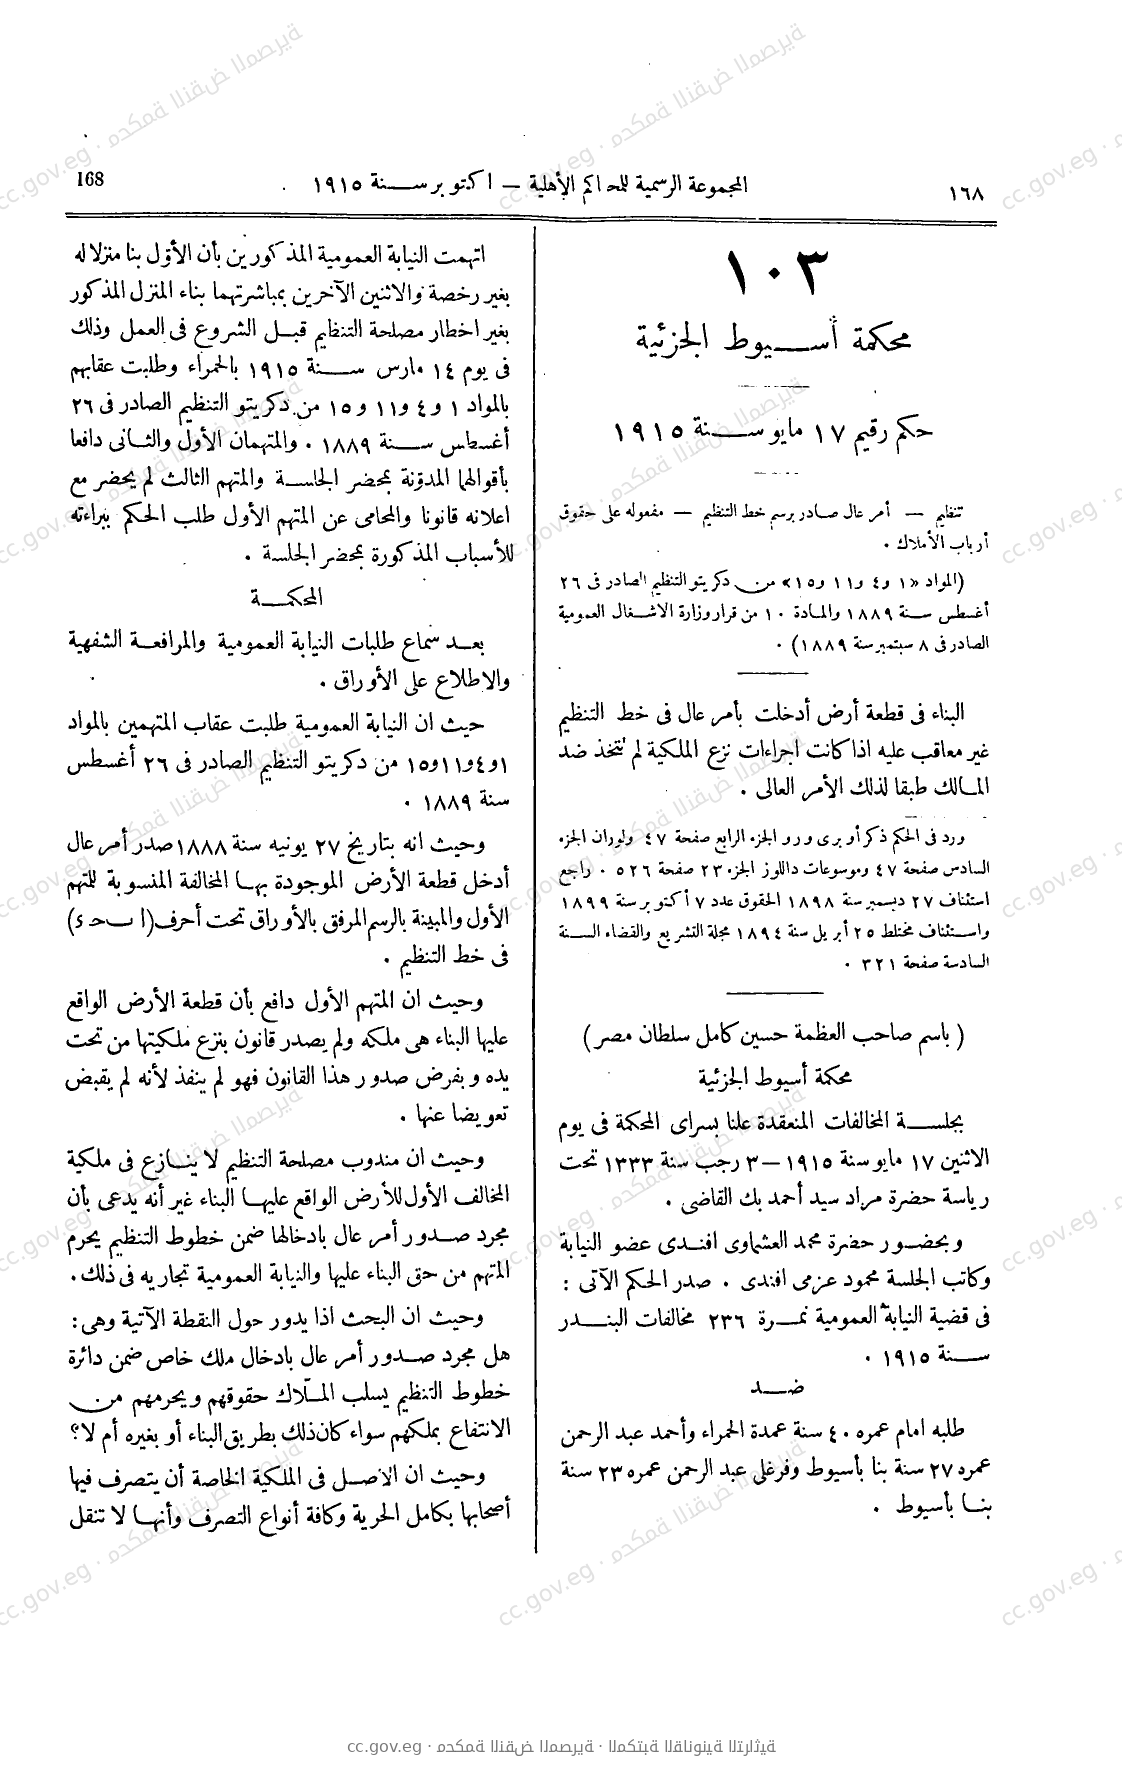 168
المجموعة الرسمية للمحاكم الأهلية – اكتوبر سنة ١٩١٥
١٦٨
١٠٣
محكمة أسيوط الجزئية
حكم رقيم ١٧ مايو سنة ١٩١٥
تنظيم – أمر عال صادر برسم خط التنظيم – مفعوله على حقوق
أرباب الأملاك .
(المواد «١ و٤ و١١ و١٥» من دكريتو التنظيم الصادر فى ٢٦
أغسطس سنة ١٨٨٩ والمادة ١٠ من قرار وزارة الاشغال العمومية
الصادر فى ٨ سبتمبر سنة ١٨٨٩) .
البناء فى قطعة أرض أدخلت بأمر عال فى خط التنظيم
غير معاقب عليه اذا كانت اجراءات نزع الملكية لم تتخذ ضد
المالك طبقا لذلك الأمر العالى .
ورد فى الحكم ذكر أوبرى ورو الجزء الرابع صفحة ٤٧ ولوران الجزء
السادس صفحة ٤٧ وموسوعات داللوز الجزء ٢٣ صفحة ٥٢٦ . راجع
استئناف ٢٧ ديسمبر سنة ١٨٩٨ الحقوق عدد ٧ أكتوبر سنة ١٨٩٩
واستئناف مختلط ٢٥ أبريل سنة ١٨٩٤ مجلة التشريع والقضاء السنة
السادسة صفحة ٣٢١ .
( باسم صاحب العظمة حسين كامل سلطان مصر )
محكمة أسيوط الجزئية
بجلسة المخالفات المنعقدة علنا بسراى المحكمة فى يوم
الاثنين ١٧ مايو سنة ١٩١٥ – ٣ رجب سنة ١٣٣٣ تحت
رياسة حضرة مراد سيد أحمد بك القاضى .
وبحضور حضرة محمد العشماوى افندى عضو النيابة
وكاتب الجلسة محمود عزمى افندى . صدر الحكم الآتى :
فى قضية النيابة العمومية نمرة ٢٣٦ مخالفات البندر
سنة ١٩١٥ .
ضد
طلبه امام عمره ٤٠ سنة عمدة الحمراء وأحمد عبد الرحمن
عمره ٢٧ سنة بنا بأسيوط وفرغلى عبد الرحمن عمره ٢٣ سنة
بنا بأسيوط .
اتهمت النيابة العمومية المذكورين بأن الأول بنا منزلا له
بغير رخصة والاثنين الآخرين بمباشرتهما بناء المنزل المذكور
بغير اخطار مصلحة التنظيم قبل الشروع فى العمل وذلك
فى يوم ١٤ مارس سنة ١٩١٥ بالحمراء وطلبت عقابهم
بالمواد ١ و٤ و١١ و١٥ من دكريتو التنظيم الصادر فى ٢٦
أغسطس سنة ١٨٨٩ . والمتهمان الأول والثانى دافعا
بأقوالهما المدوّنة بمحضر الجلسة والمتهم الثالث لم يحضر مع
اعلانه قانونا والمحامى عن المتهم الأول طلب الحكم ببراءته
للأسباب المذكورة بمحضر الجلسة .
المحكمة
بعد سماع طلبات النيابة العمومية والمرافعة الشفهية
والاطلاع على الأوراق .
حيث ان النيابة العمومية طلبت عقاب المتهمين بالمواد
١و٤و١١و١٥ من دكريتو التنظيم الصادر فى ٢٦ أغسطس
سنة ١٨٨٩ .
وحيث انه بتاريخ ٢٧ يونيه سنة ١٨٨٨ صدر أمر عال
أدخل قطعة الأرض الموجودة بها المخالفة المنسوبة للمتهم
الأول والمبينة بالرسم المرفق بالأوراق تحت أحرف (ا ب ح ء)
فى خط التنظيم .
وحيث ان المتهم الأول دافع بأن قطعة الأرض الواقع
عليها البناء هى ملكه ولم يصدر قانون بنزع ملكيتها من تحت
يده وبفرض صدور هذا القانون فهو لم ينفذ لأنه لم يقبض
تعويضا عنها .
وحيث ان مندوب مصلحة التنظيم لا ينازع فى ملكية
المخالف الأول للأرض الواقع عليها البناء غير أنه يدعى بأن
مجرد صدور أمر عال بادخالها ضمن خطوط التنظيم يحرم
المتهم من حق البناء عليها والنيابة العمومية تجاريه فى ذلك.
وحيث ان البحث اذا يدور حول النقطة الآتية وهى :
هل مجرد صدور أمر عال بادخال ملك خاص ضمن دائرة
خطوط التنظيم يسلب الملّاك حقوقهم ويحرمهم من
الانتفاع بملكهم سواء كان ذلك بطريق البناء أو بغيره أم لا؟
وحيث ان الأصل فى الملكية الخاصة أن يتصرف فيها
أصحابها بكامل الحرية وكافة أنواع التصرف وأنها لا تنقل
cc.gov.eg · محكمة النقض المصرية · المكتبة القانونية التراثية